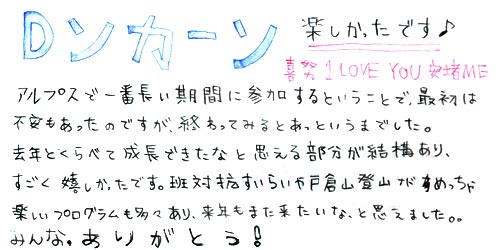 Dンカーン 楽しかったです♪
喜努 I LOVE YOU 安堵ME
アルプスで一番長い期間に参加するということで、最初は
不安もあったのですが、終わってみるとあっというまでした。
去年とくらべて成長できたなと思える部分が結構あり、
すごく嬉しかったです。班対抗すいらいや戸倉山登山がすめっちゃ
楽しいプログラムも多々あり、来年もまた来たいな、と思えました。。
みんな、ありがとう!